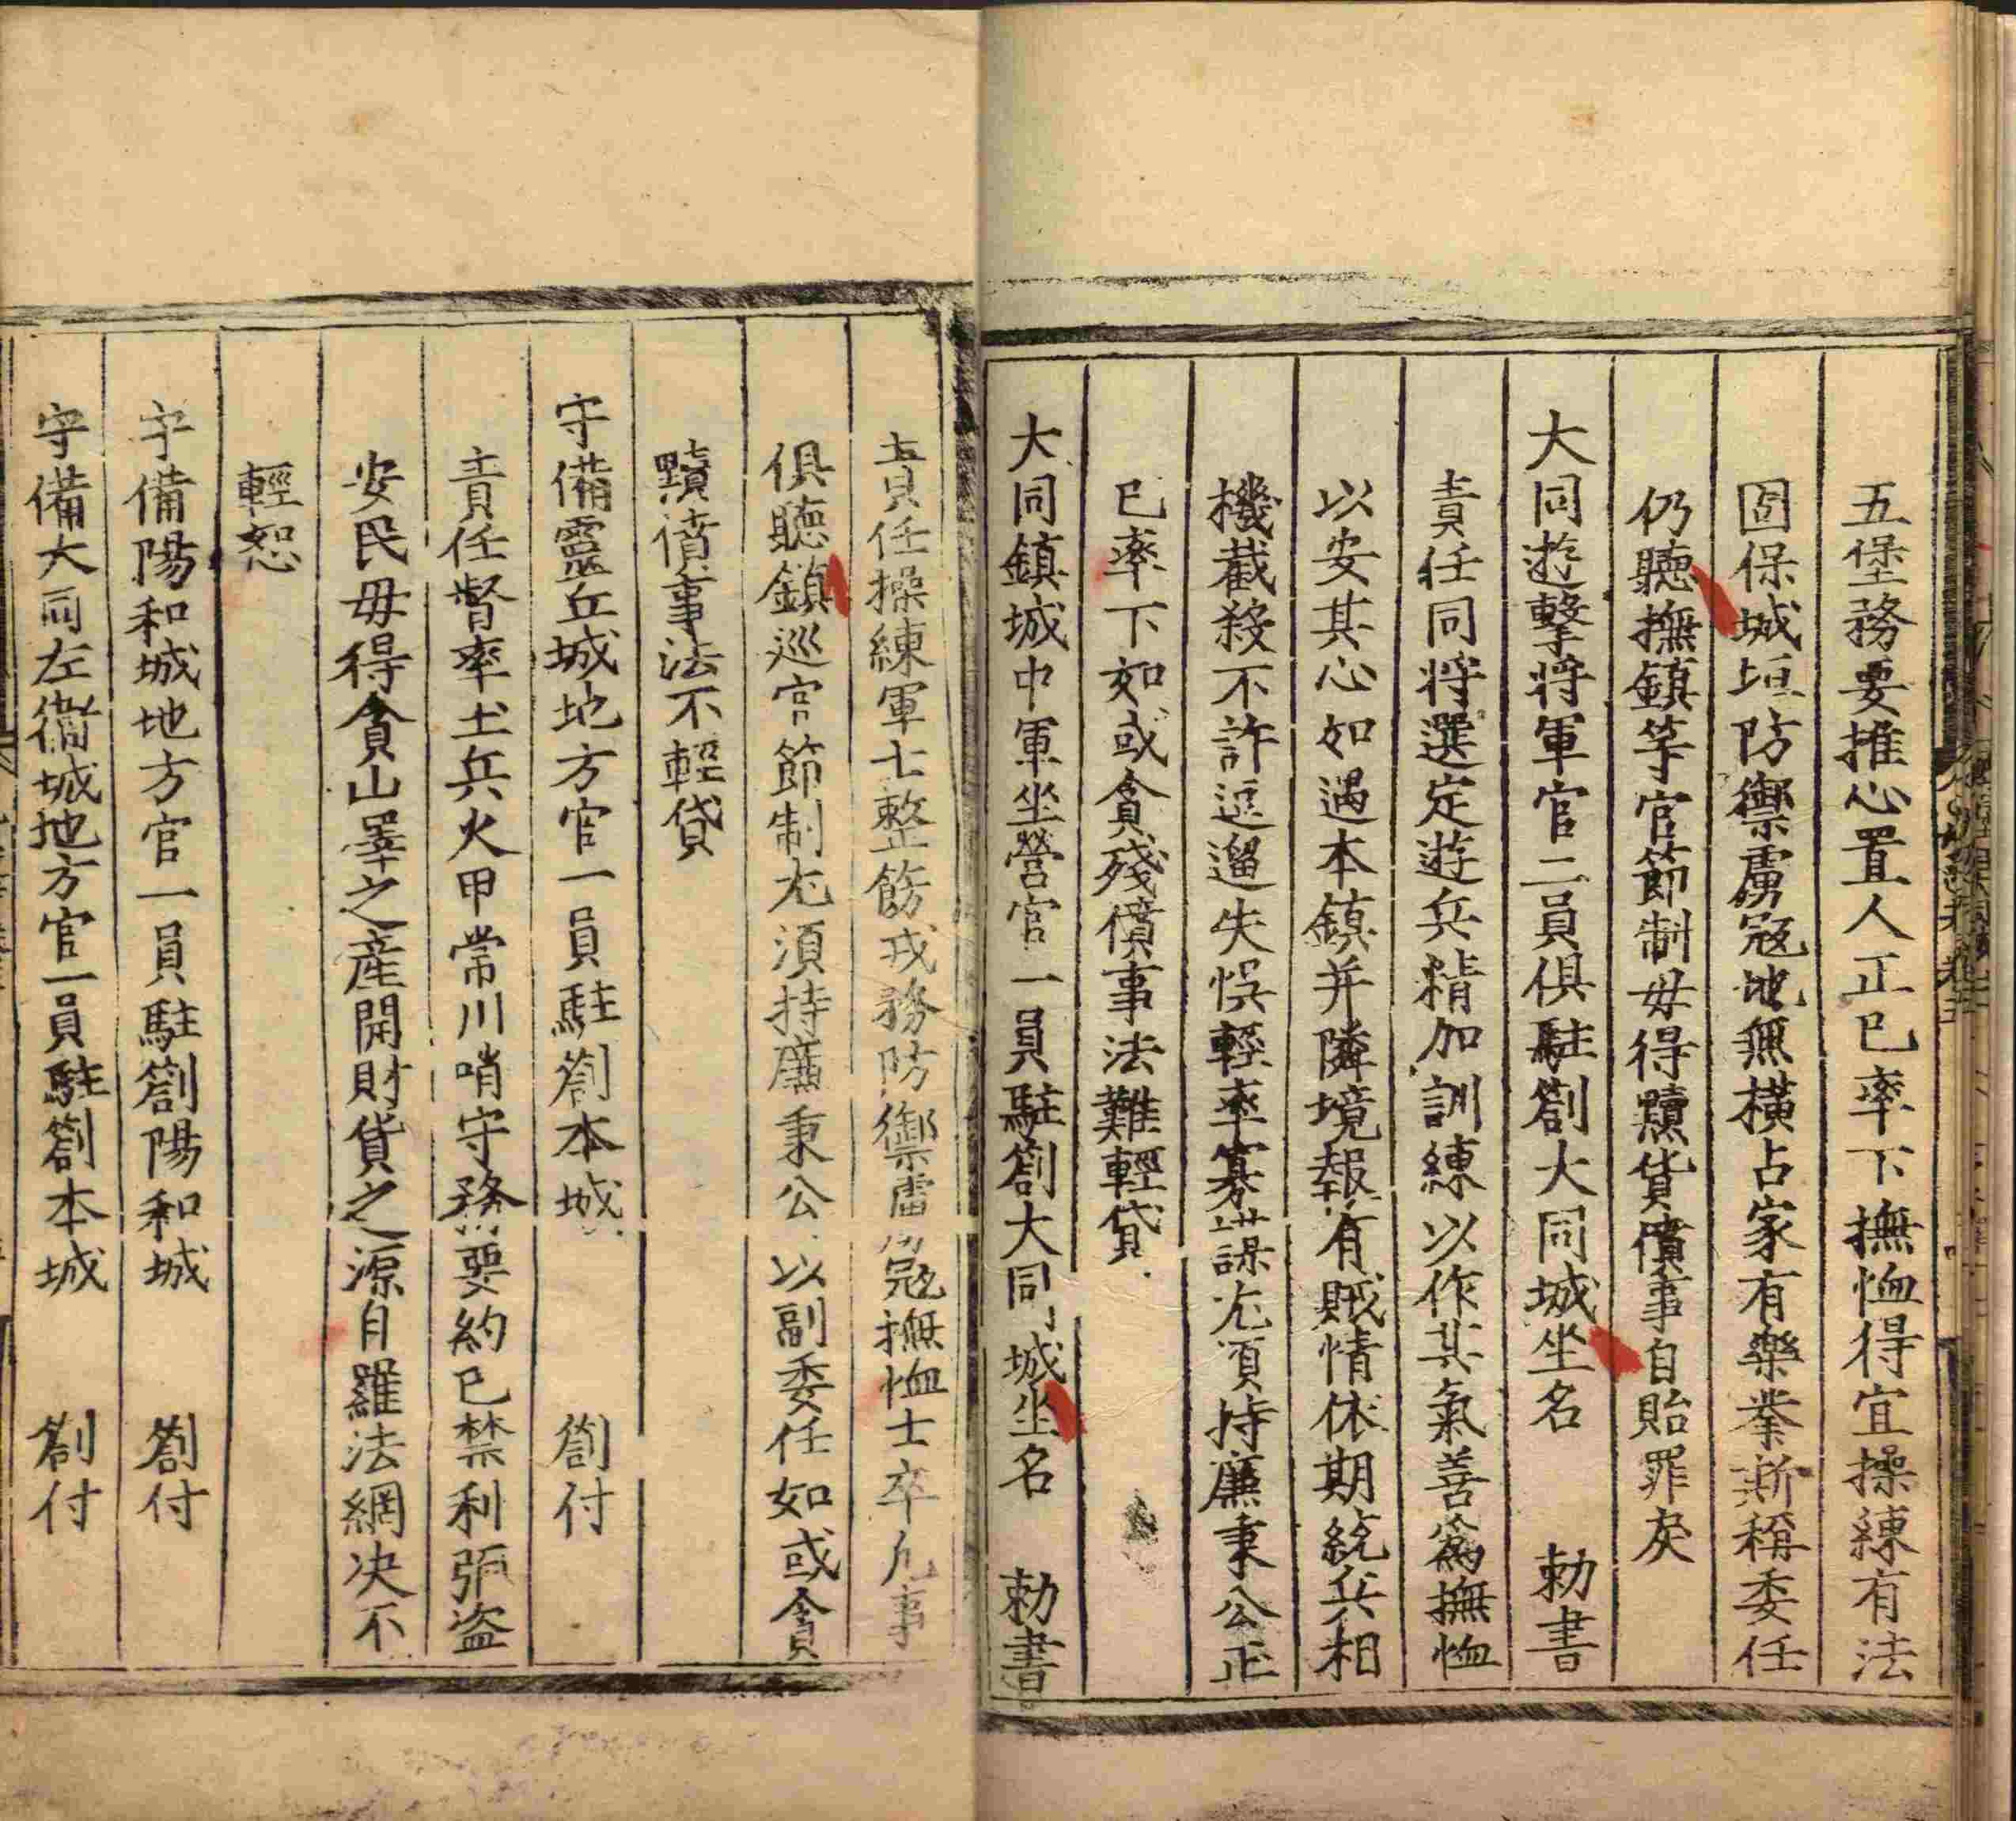 五堡務要推心置人正已率下撫恤得宜操練有法
固保城垣防禦虜寇地無橫占家有樂業斯稱委任
仍聽撫鎮等官節制毋得黷貨僨事自貽罪戾
大同遊擊將軍官二員俱駐劄大同城坐名 勅書
責任同將選定遊兵精加訓練以作其氣善爲撫恤
以安其心如遇本鎮并隣境報有賊情依期統兵相
機截殺不許逗遛失悞輕率寡謀尤須持廉秉公正
已率下如或貪殘僨事法難輕貸
大同鎮城中軍坐營官一員駐劄大同城坐名 勅書
責任操練軍士整飭戎務防禦虜寇撫恤士卒凡事
俱聽鎮巡官節制尤須持廉秉公以副委任如或貪
黷僨事法不輕貸
守備靈丘城地方官一員駐劄本城 劄付
責任督率土兵火甲常川哨守務要約已禁利弭盜
安民毋得貪山澤之產開財貨之源自羅法網决不
輕恕
守備陽和城地方官一員駐劄陽和城 劄付
守備大同左衛城地方官一員駐劄本城 劄付